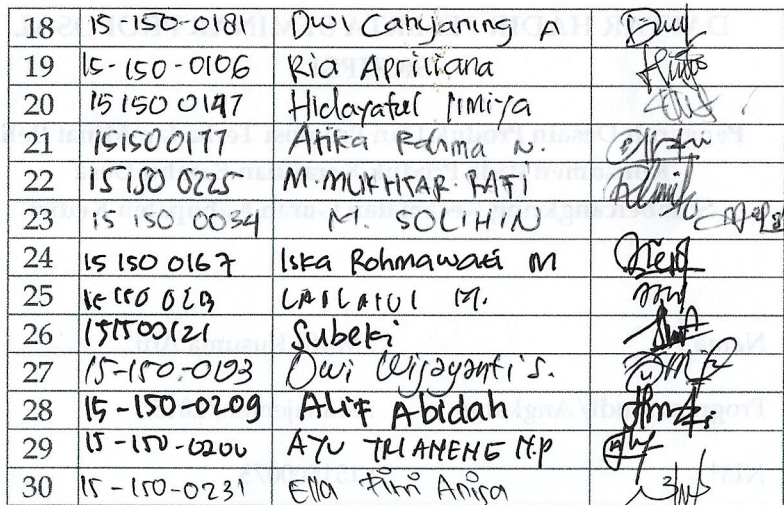 18 15-150-0181 Dwi Cahyaning A
19 15-150-0106 Ria Apriliana
20 15 150 0147 Hidayatul
21 15150 0177 Atika Rahma N.
22 15 150 0225 M. MUKHTAR. FATI
23 15 150 0034 M. SOLIHIN
24 15 150 0167 Iska Rohmawati M
25 LAILATUL M.
26 151500121 Subeki
27 15-150-0193 Dwi Wijayanti S.
28 15-150-0209 Alif Abidah
29 15-150-0200 AYU M.P
30 15-150-0231 Ella Anisa